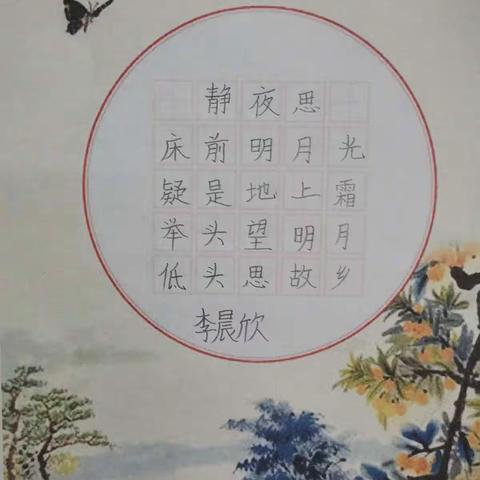 静夜思
床前明月光
疑是地上霜
举头望明月
低头思故乡
李晨欣